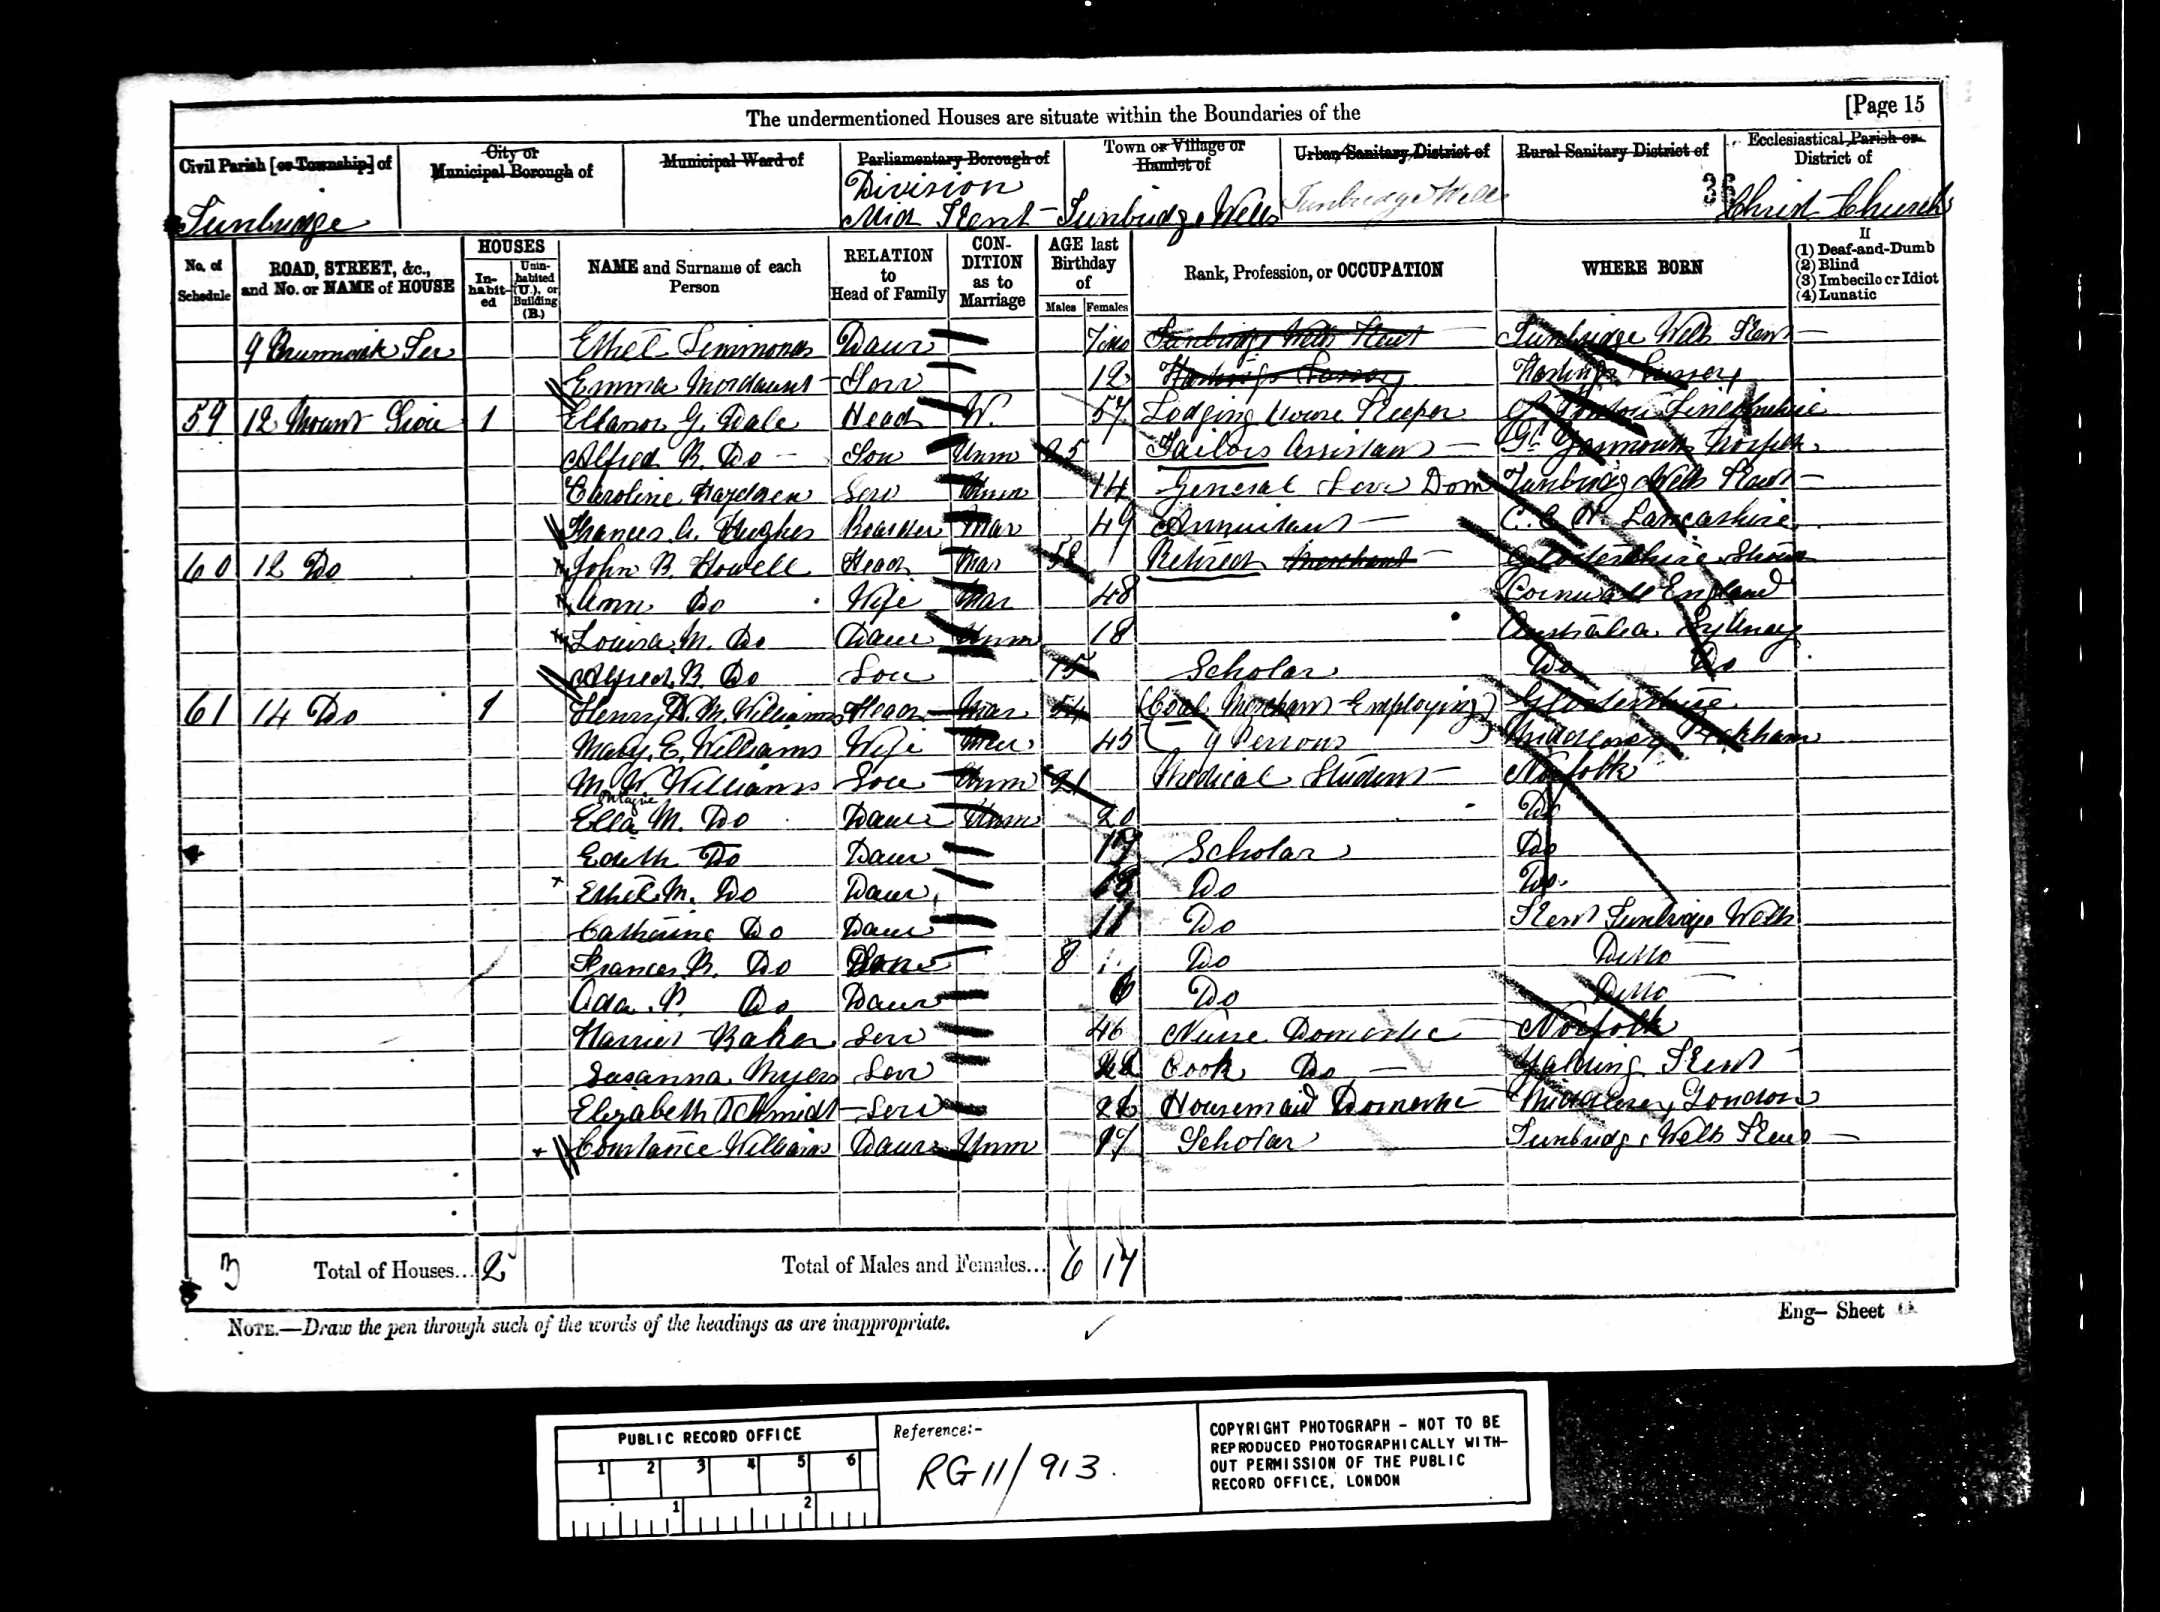 The undermentioned Houses are situate within the Boundaries of the
[Page 15
Civil Parish [or Township] of
City or Municipal Borough of
Municipal Ward of
Parliamentary Borough of
Town or Village or Hamlet of
Urban Sanitary District of
Rural Sanitary District of
Ecclesiastical Parish or District of
Tunbridge
Division Mid Kent
Tunbridge Wells
Tunbridge Wells
36
Christ Church
No. of Schedule
ROAD, STREET, &c., and No. or NAME of HOUSE
HOUSES
In-habit-ed
Unin-habited (U.), or Building (B.)
NAME and Surname of each Person
RELATION to Head of Family
CON-DITION as to Marriage
AGE last Birthday of
Males
Females
Rank, Profession, or OCCUPATION
WHERE BORN
If
(1) Deaf-and-Dumb
(2) Blind
(3) Imbecile or Idiot
(4) Lunatic
9 Brunswick Ter Ethel Simmonds Daur 7 mo Tunbridge Wells Kent Tunbridge Wells Kent
Emma Mordaunt 12 Hastings Sussex Hastings Sussex
59 12 Mount Sion 1 Ellanor G. Dale Head W. 57 Lodging House Keeper
Alfred R. Do Son Unm 25 Tailors Assistant Gt Yarmouth Norfolk
Caroline Serv Unm 14 General Serv Dom Tunbridge Wells Kent
Frances A. Hughes Boarder Mar 49 Annuitant Lancashire
60 12 Do John B. Howell Head Mar 58 Retired Merchant
Ann Do Wife Mar 48 Cornwall England
Louisa M. Do Daur Unm 18 Australia Sydney
Alfred B. Do Son 15 Scholar Do Do
61 14 Do 1 Henry M. Williams Head Mar 54 (Coal Merchant Employing) Glostershire
Mary E. Williams Wife Mar 45 9 Persons Middlesex
M. W. Williams Son Unm 21 Medical Student Norfolk
ontague
Ella M. Do Daur Unm 20 Do
Edith Do Daur 17 Scholar Do
Ethel M. Do Daur 13 Do Do
Catherine Do Daur 11 Do Kent Tunbridge Wells
Frances B. Do Son 8 Do Ditto
Ada P. Do Daur 6 Do Ditto
Harriet Baker Serv 46 Nurse Domestic Norfolk
Susanna Myers Serv 22 Cook Do Yalding Kent
Elizabeth Schmidt Serv Housemaid Domestic Middlesex London
Constance Williams Daur Unm 17 Scholar Tunbridge Wells Kent
3 Total of Houses... 2
Total of Males and Females... 6 17
NOTE.—Draw the pen through such of the words of the headings as are inappropriate.
Eng— Sheet
PUBLIC RECORD OFFICE
1 2 3 4 5 6
1 2
Reference:-
RG 11/913.
COPYRIGHT PHOTOGRAPH - NOT TO BE
REPRODUCED PHOTOGRAPHICALLY WITH-
OUT PERMISSION OF THE PUBLIC
RECORD OFFICE, LONDON